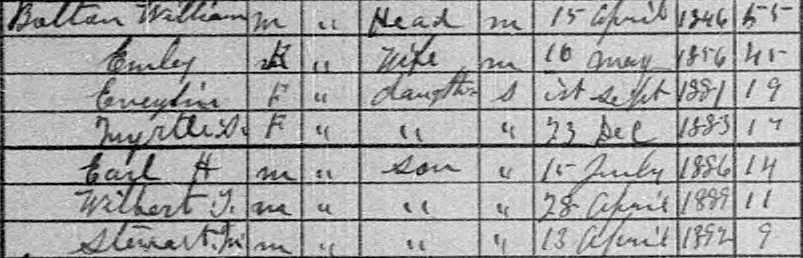 Bolton William m " Head m 15 April 1846 55
Emley F " Wife m 10 May 1856 45
Eveylin F " daughter s 1st Sept 1881 19
Myrtle F " " " 23 Dec 1883 17
Earl H m " son " 15 July 1886 14
Wilbert J. m " " " 28 April 1889 11
Stewart m " " " 13 April 1892 9